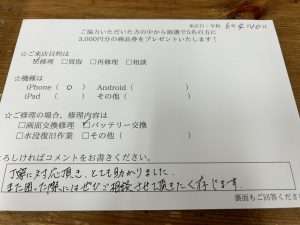 ご協力いただいた方の中から抽選で5名の方に
3,000円分の商品券をプレゼントいたします！
☆ご来店目的は
☑修理 □買取 □再修理 □相談
☆機種は
iPhone（ ○ ） Android（ ）
iPad（ ） その他（ ）
☆ご修理の場合、修理内容は
□画面交換修理 ☑バッテリー交換
□水没復旧作業 □その他（ ）
ろしければコメントをお書きください。
丁寧に対応頂き、とても助かりました。
また困った際にはぜひご相談させて頂きたく存じます。
裏面もご回答くださ